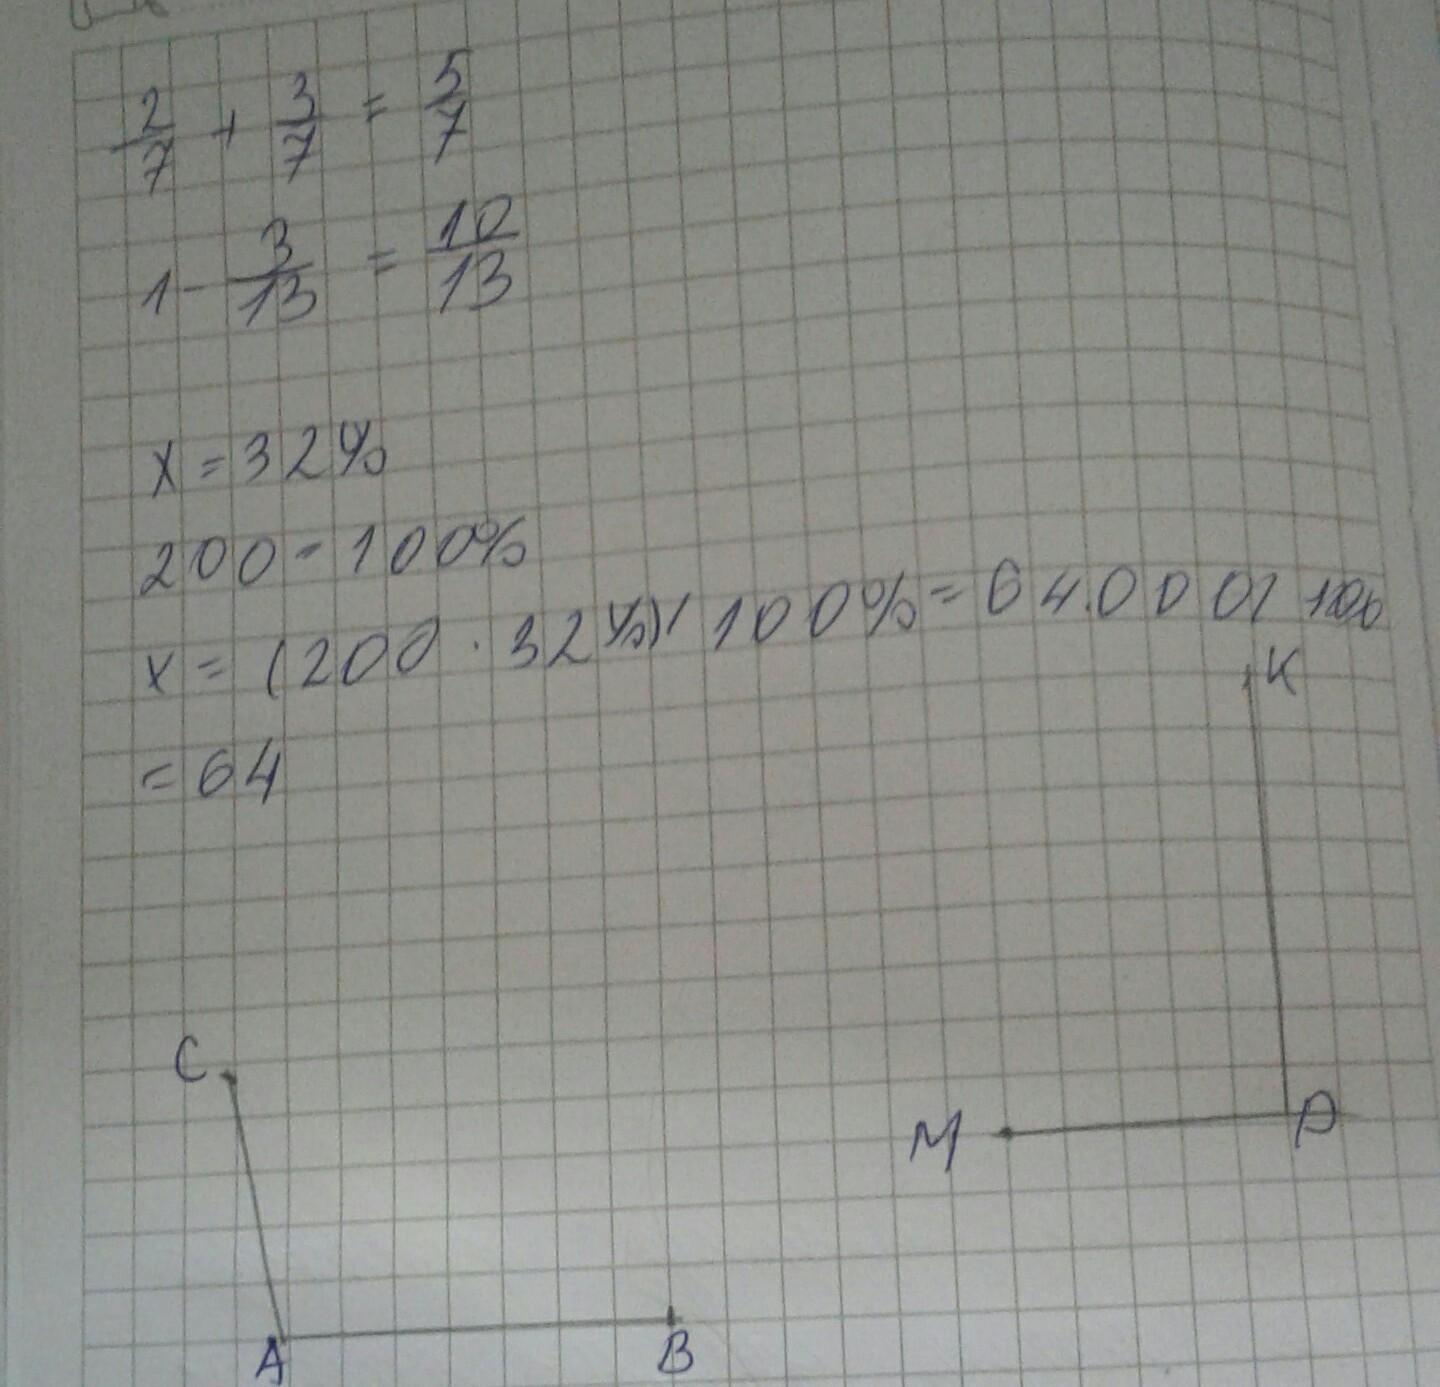 2/7 + 3/7 = 5/7
1 - 3/13 = 10/13
x = 32%
200 - 100%
x = (200 · 32%)/ 100% = 64.000/ 100
= 64
K
C
M D
A B